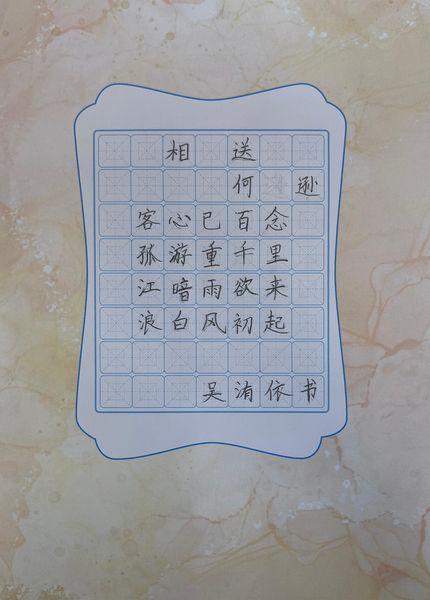 相 送
何 逊
客心已百念
孤游重千里
江暗雨欲来
浪白风初起
吴洧依书